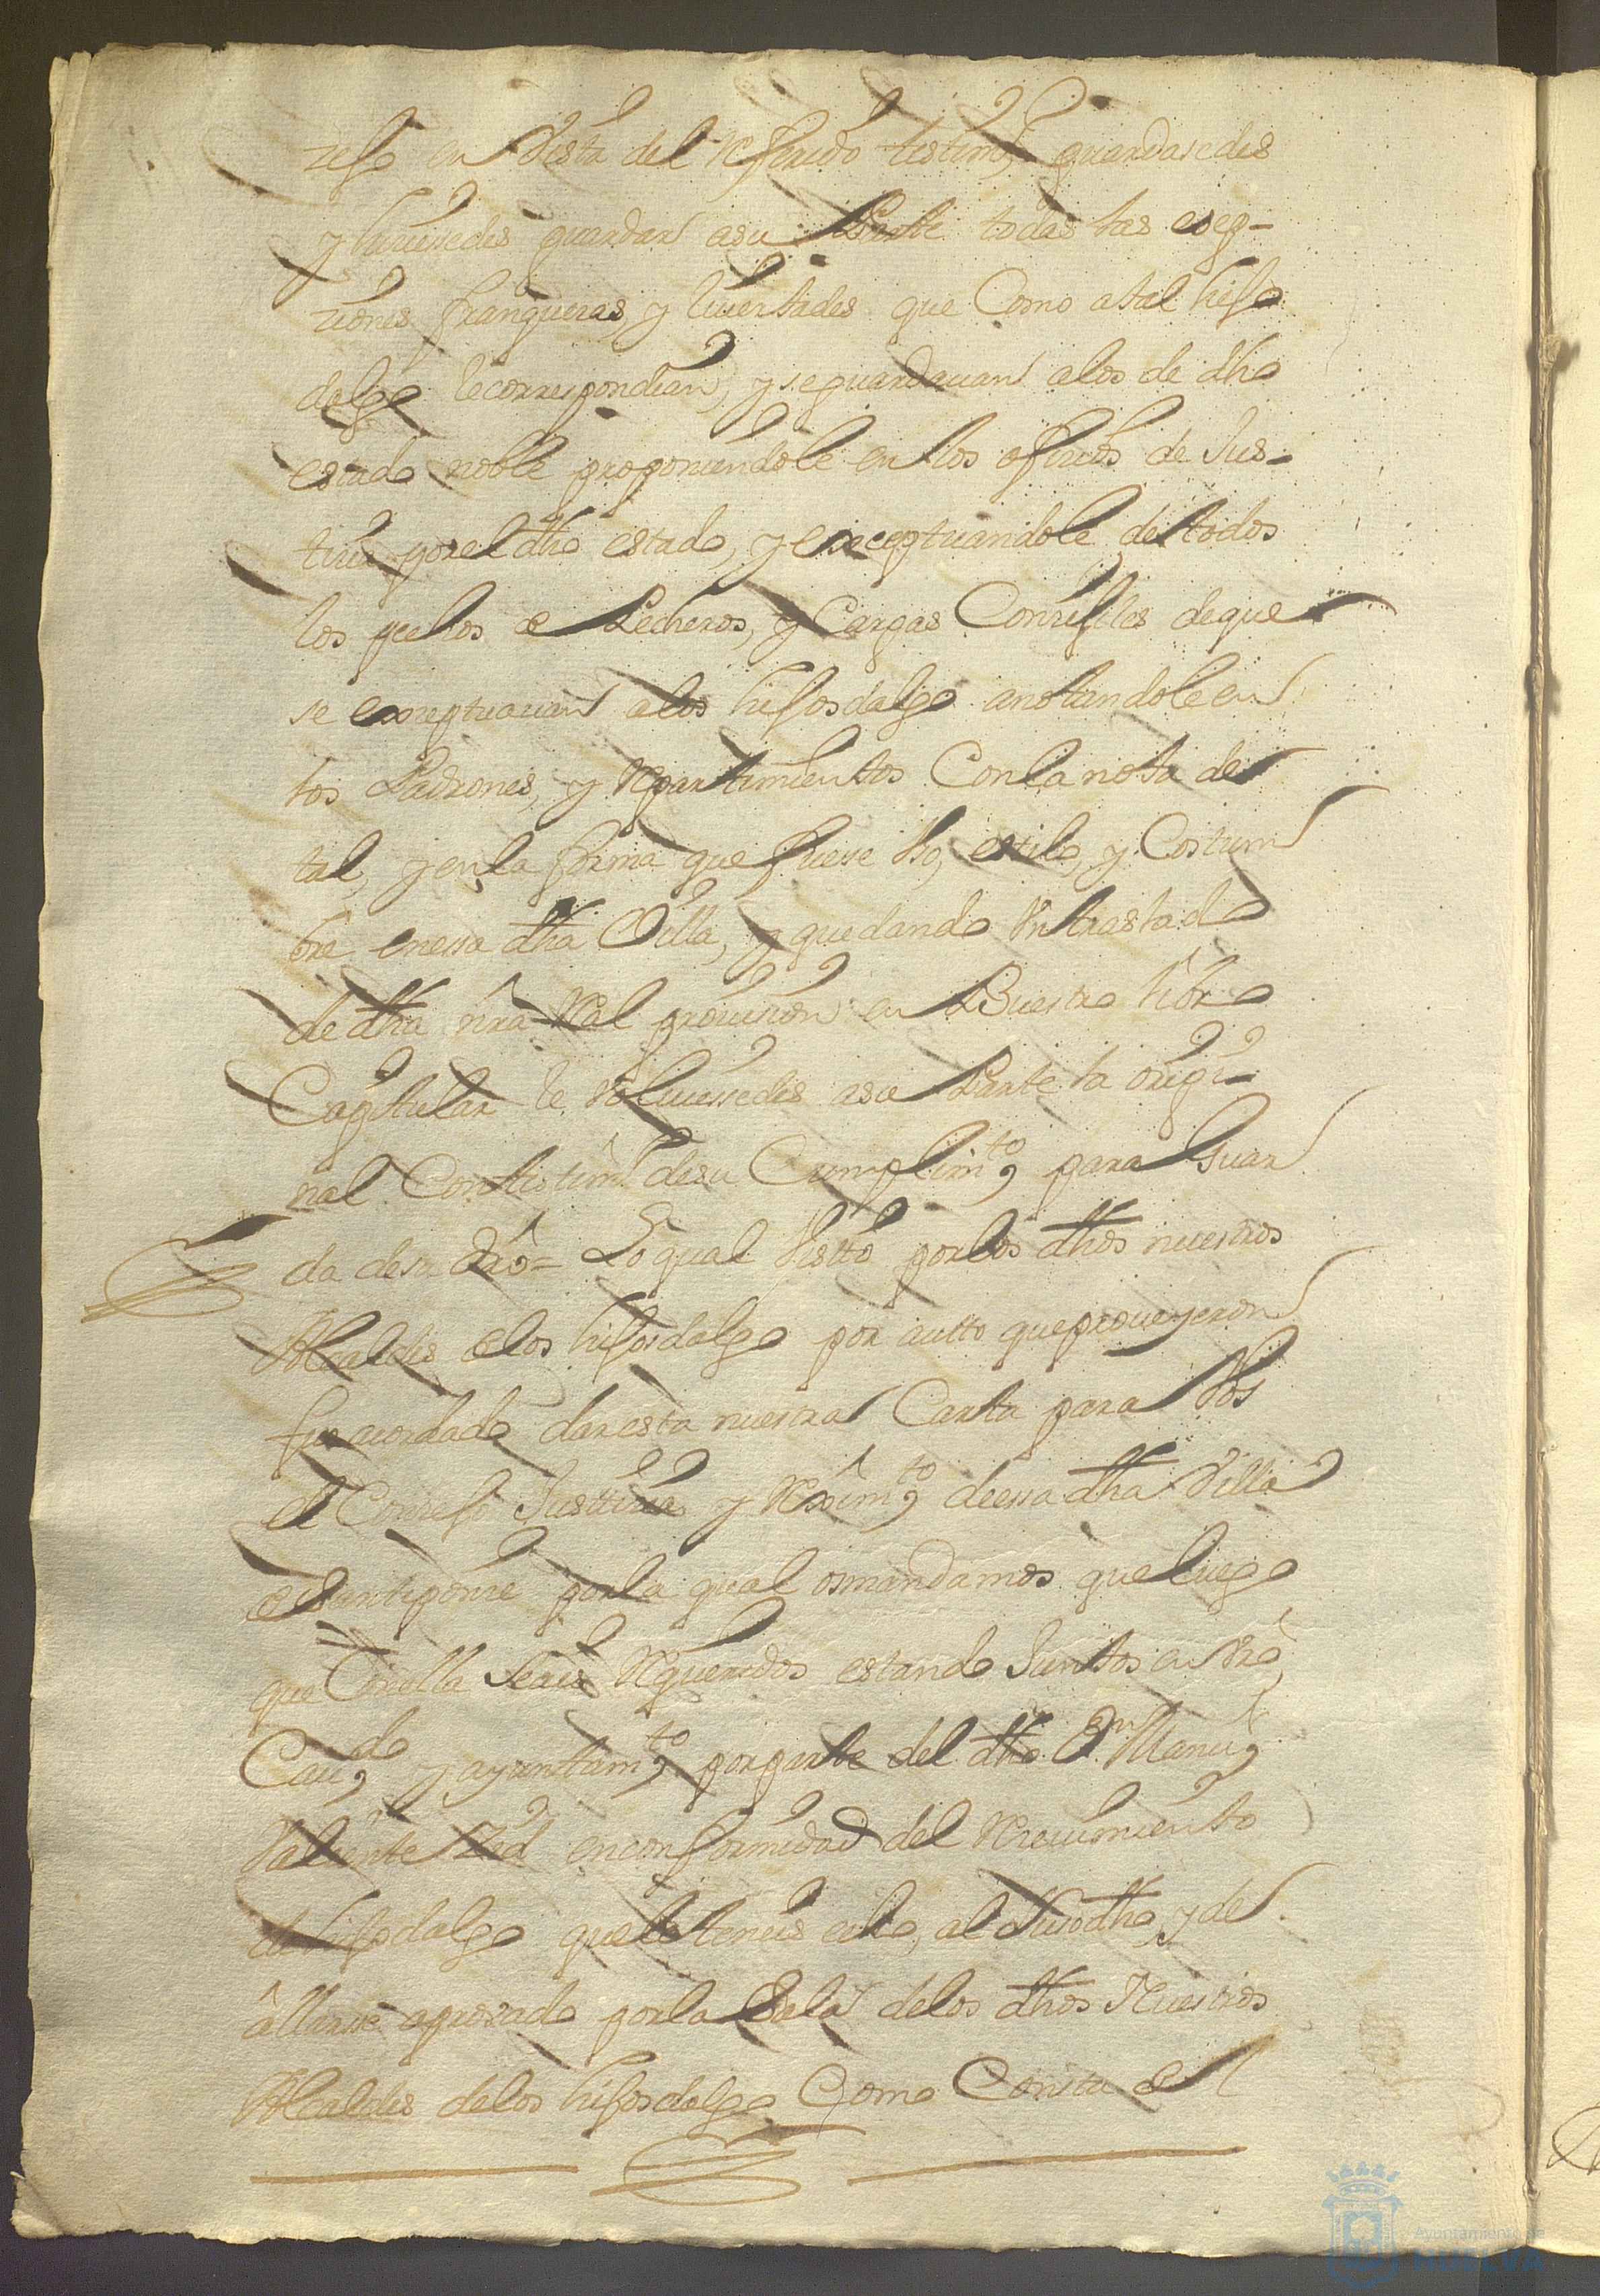 zejo en Vista del referido testimo, guardasedes
y hiciesedes guardar asu Parte todas las esep-
ziones franquezas, y livertades que Como atal hijo
dalgo lecorrespondian, y seguardavan alos de dho
estado noble proponiendole en los ofizios de Jus-
tizia por el dho estado, y exceptuandole de todos
los pechos de Pecheros, y Cargas Conzejiles deque
se exceptuavan alos hijosdalgo anotandole en
los Padrones, y Repartimientos Conlanota de
tal, yenla forma que fuese Vso, estilo, y Costum
bre enessa dha Villa, y quedando Vn traslado
de dha nra Real provision en Vuestro libro
Capitular le volviessedes asu Parte la origi-
nal Con testimo desu Cumplimto, para Guar
da desu dro= Lo qual Visto por los dhos nuestros
Alcaldes delos hijosdalgo por autto queproveyeron
fue acordado dar esta nuestra Carta para Vos
el Conzejo Justizia y Reximto deessa dha Villa
de Sanctiponze por la qual osmandamos queluego
que Conella seais Requeridos estando Juntos en Vro
Cavdo, y ayuntamto, por parte del dho Dn Manul
Valiente en conformidad del Recivimiento
de hijodalgo que le teneis echo, al Susodho, y de
allarse aprovado por la Sala delos dhos Nuestros
Alcaldes delos hijosdalgo Como Consta del
Ayuntamiento de
HUELVA